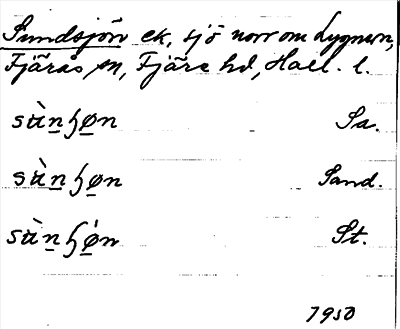 Sundsjön ek, sjö norr om Lygnern,
Fjärås sn, Fjäre hd, Hall. l.
sùnɧøn Sa.
sùnɧøn Sand.
sùnɧø̀n St.
1950